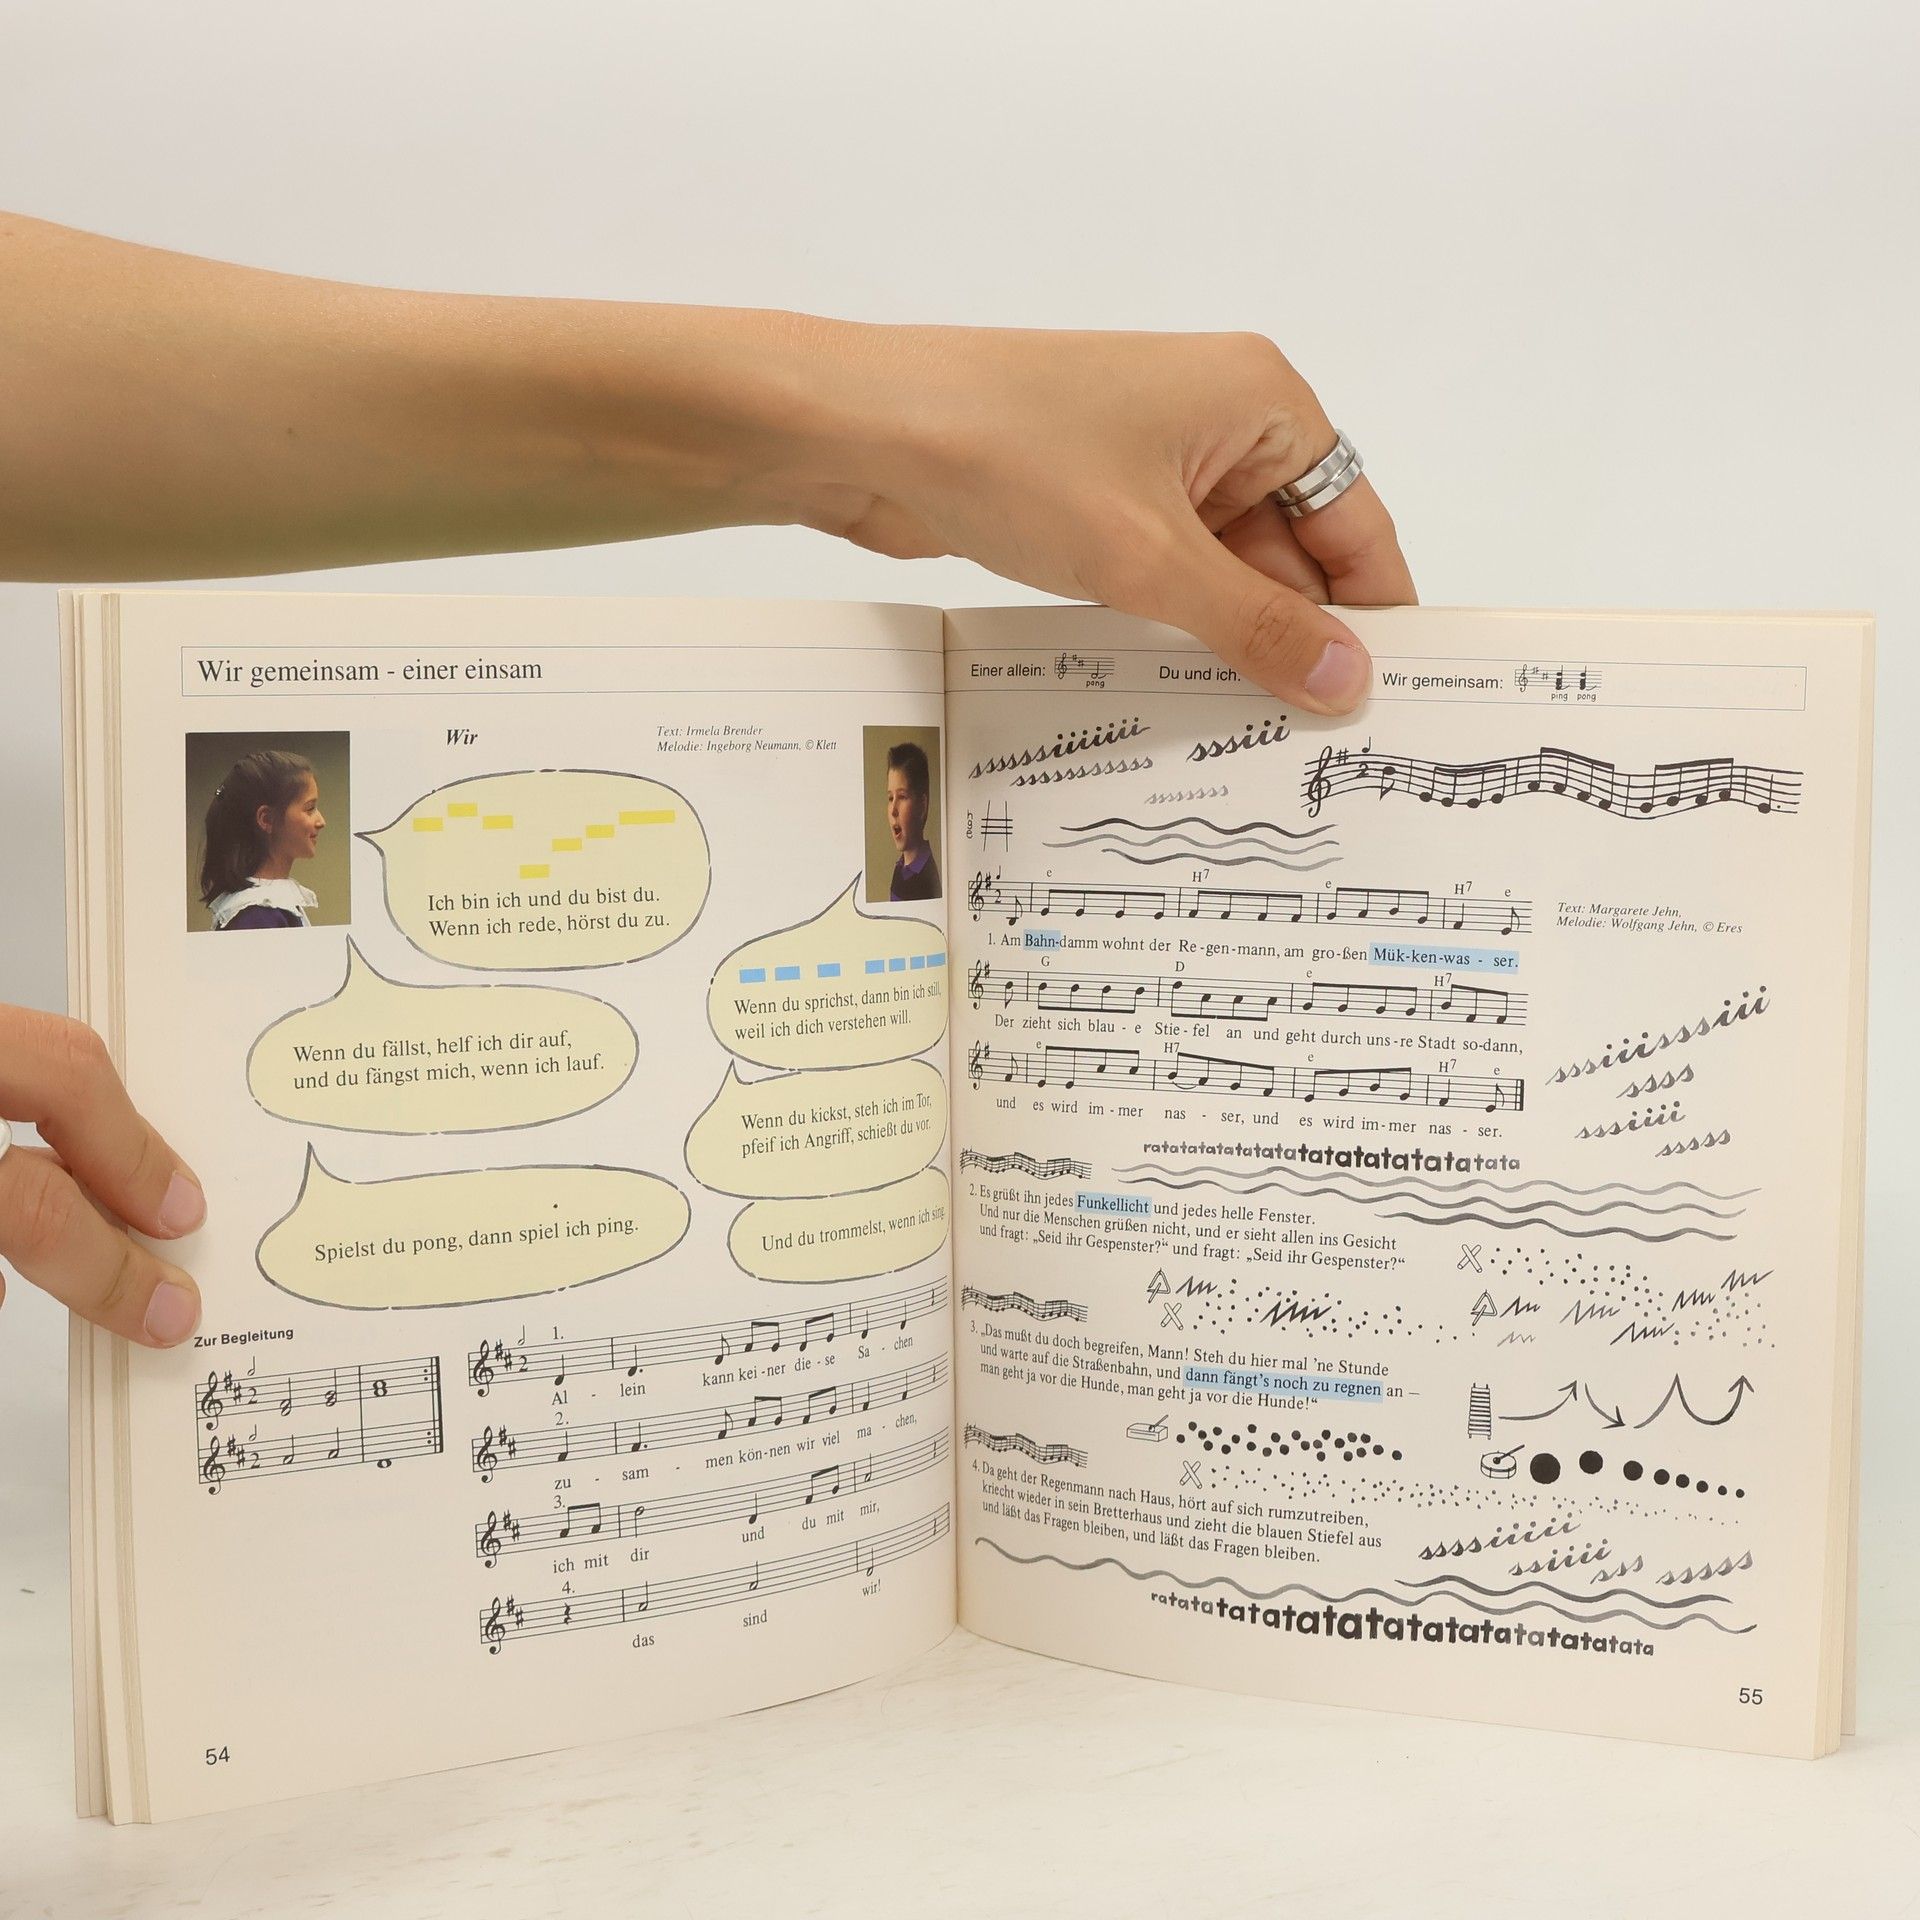 Wir gemeinsam - einer einsam
Wir
Text: Irmela Brender
Melodie: Ingeborg Neumann, © Klett
Ich bin ich und du bist du.
Wenn ich rede, hörst du zu.
Wenn du sprichst, dann bin ich still,
weil ich dich verstehen will.
Wenn du fällst, helf ich dir auf,
und du fängst mich, wenn ich lauf.
Wenn du kickst, steh ich im Tor,
pfeif ich Angriff, schießt du vor.
Spielst du pong, dann spiel ich ping.
Und du trommelst, wenn ich sing.
Zur Begleitung
1.
Al - lein kann kei - ner die - se Sa - chen
2.
zu - sam - men kön - nen wir viel ma - chen,
3.
ich mit dir und du mit mir,
4.
das sind wir!
54
Einer allein: pong Du und ich: Wir gemeinsam: ping pong
sssssiiiiiii sssiii
sssssssssss
ssssssss
e H7 e H7 e
Text: Margarete Jehn,
Melodie: Wolfgang Jehn, © Eres
1. Am Bahn-damm wohnt der Re-gen-mann, am gro-ßen Mük-ken-was - ser.
G D e H7
Der zieht sich blau - e Stie - fel an und geht durch uns-re Stadt so-dann,
e H7 e H7 e
und es wird im - mer nas - ser, und es wird im-mer nas - ser.
sssiiisssiii
ssss
sssiiii
sssss
ratatatatatatatatatatatatatatata
2. Es grüßt ihn jedes Funkellicht und jedes helle Fenster.
Und nur die Menschen grüßen nicht, und er sieht allen ins Gesicht
und fragt: „Seid ihr Gespenster?“ und fragt: „Seid ihr Gespenster?“
3. „Das mußt du doch begreifen, Mann! Steh du hier mal 'ne Stunde
und warte auf die Straßenbahn, und dann fängt's noch zu regnen an –
man geht ja vor die Hunde, man geht ja vor die Hunde!“
4. Da geht der Regenmann nach Haus, hört auf sich rumzutreiben,
kriecht wieder in sein Bretterhaus und zieht die blauen Stiefel aus
und läßt das Fragen bleiben, und läßt das Fragen bleiben.
ssssiiiii
ssiiii sss sssss
ratatatatatatatatatatatatatatatata
55